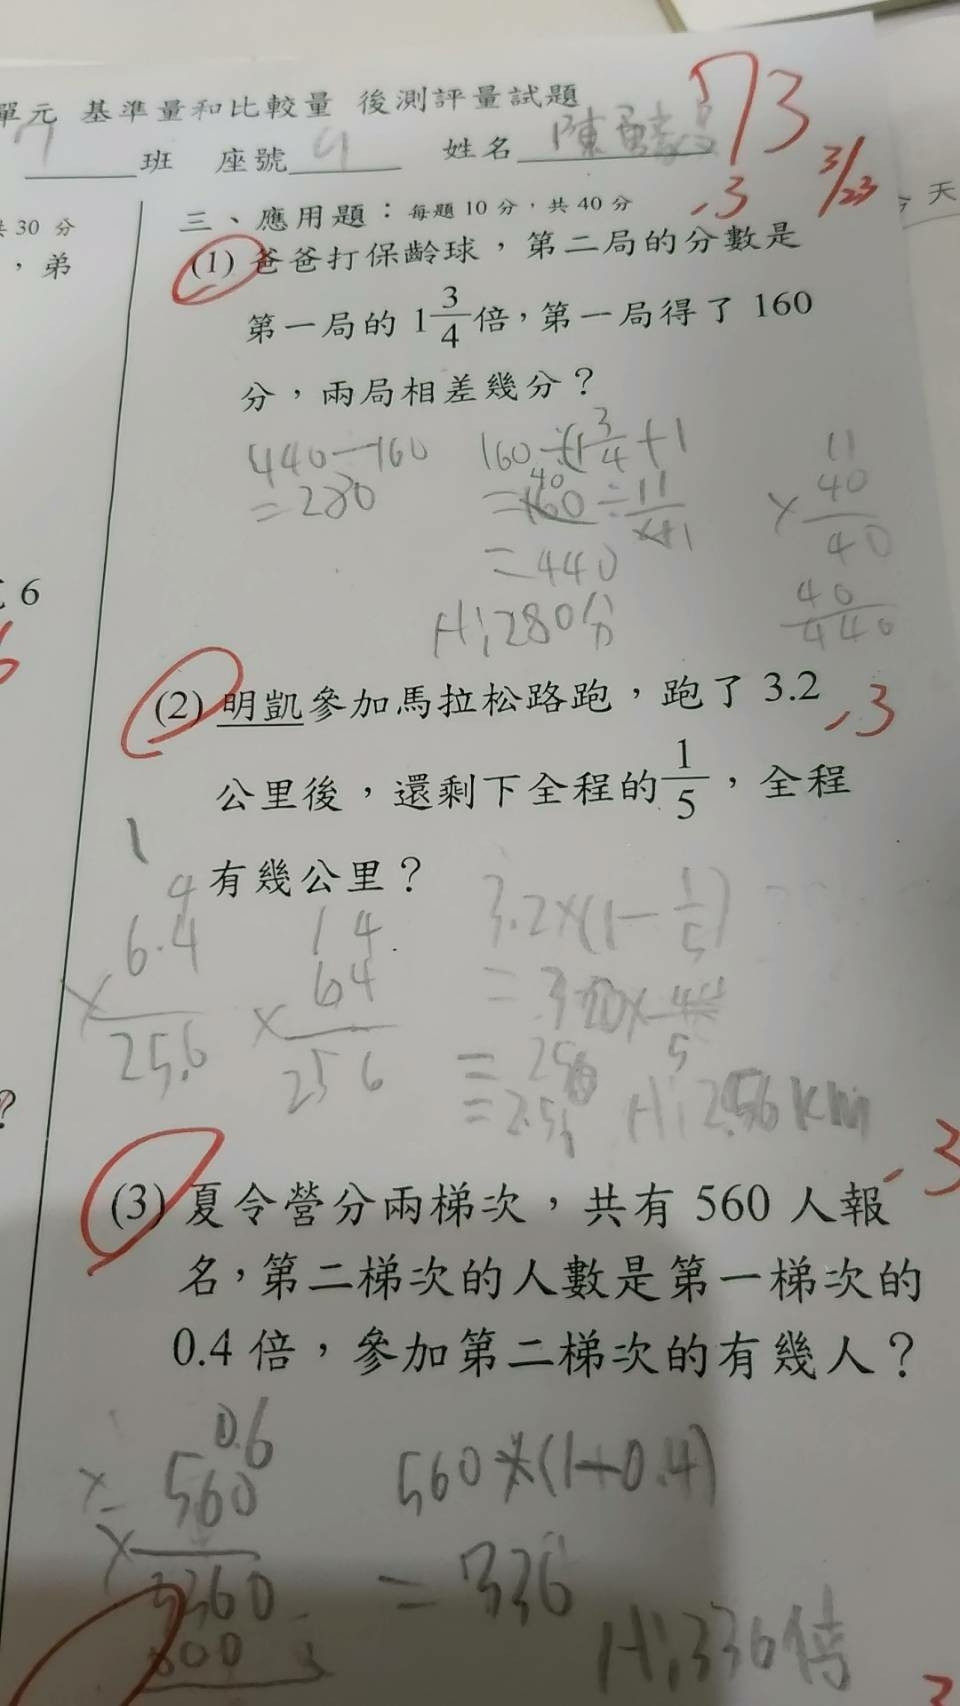 單元 基準量和比較量 後測評量試題
班 座號 姓名 陳
73
3/23
-3
共 30 分
，弟
6
？
，天
三、應用題：每題 10 分，共 40 分
(1) 爸爸打保齡球，第二局的分數是
第一局的 1 3/4 倍，第一局得了 160
分，兩局相差幾分？
440-160
=280
160÷(1 3/4+1
=160÷11/4
=440
A:280分
11
×40
40
440
(2) 明凱參加馬拉松路跑，跑了 3.2
-3
公里後，還剩下全程的 1/5，全程
有幾公里？
6.4
×4
25.6
64
×4
256
3.2×(1-1/5)
=2.56
A:2.56km
(3) 夏令營分兩梯次，共有 560 人報
-3
名，第二梯次的人數是第一梯次的
0.4 倍，參加第二梯次的有幾人？
0.6
×560
3360
560×(1-0.4)
=336
A:336倍